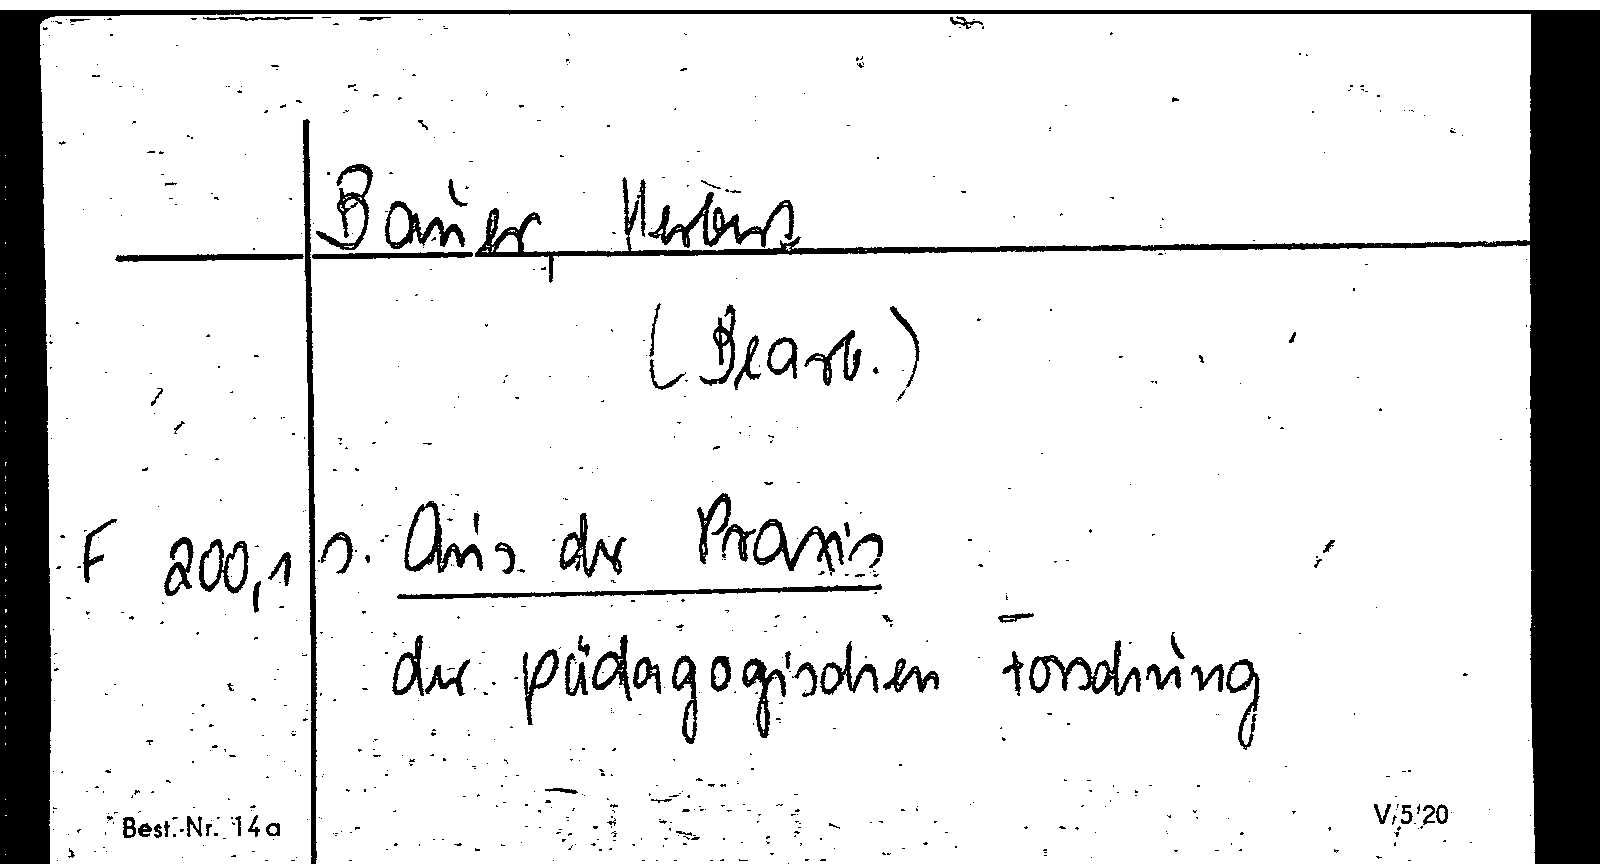 Bauer, Herbert
(Bearb.)
F 200,1 s. Aus der Praxis
der pädagogischen Forschung
Best.-Nr. 14a V/5/20